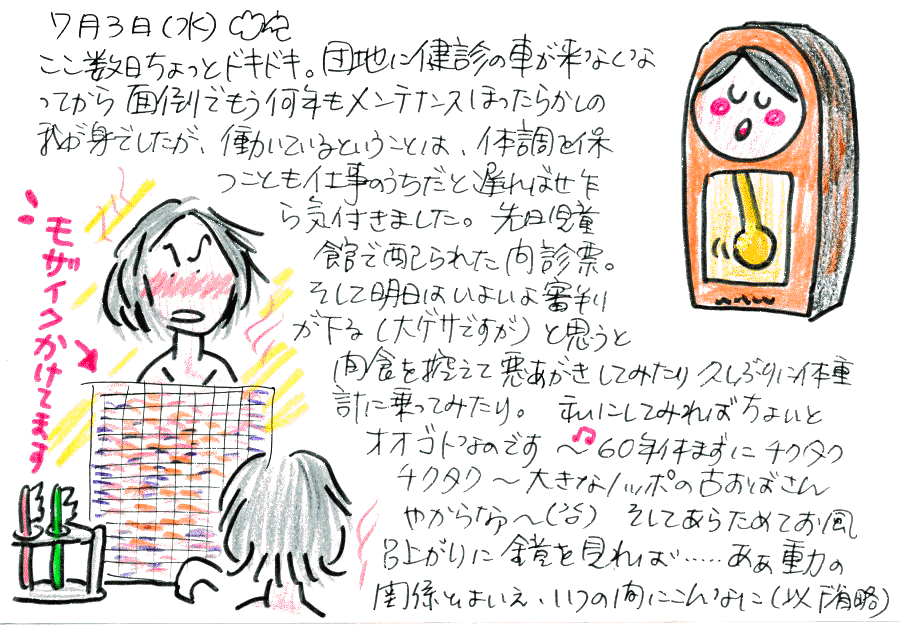 7月3日(水)
ここ数日ちょっとドキドキ。団地に健診の車が来なくな
ってから面倒でもう何年もメンテナンスほったらかしの
我が身でしたが、働いているということは、体調を保
つことも仕事のうちだと遅ればせ乍
ら気付きました。先日児童
館で配られた問診票。
そして明日はいよいよ審判
が下る(大ゲサですが)と思うと
肉食を控えて悪あがきしてみたり久しぶりに体重
計に乗ってみたり。私にしてみればちょいと
オオゴトなのです〜60年休まずにチクタク
チクタク〜大きなノッポの古おばさん
やからなぁ〜 そしてあらためてお風
呂上がりに鏡を見れば……あぁ重力の
関係とはいえ、いつの間にこんなに(以下省略)
モザイクかけてます